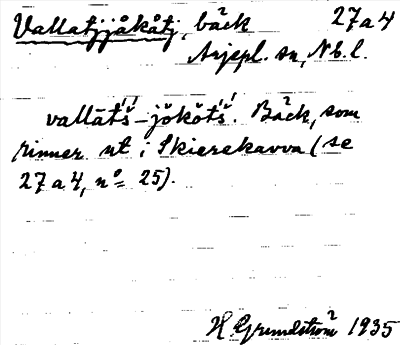 Vallatjjåkåtj, bäck 27a4
Arjepl. sn, Nb. l.
vallātš́́-jǒkǒtš́́. Bäck, som
rinner ut i Skierekavva (se
27a4, nº 25).
H Grundström 1935